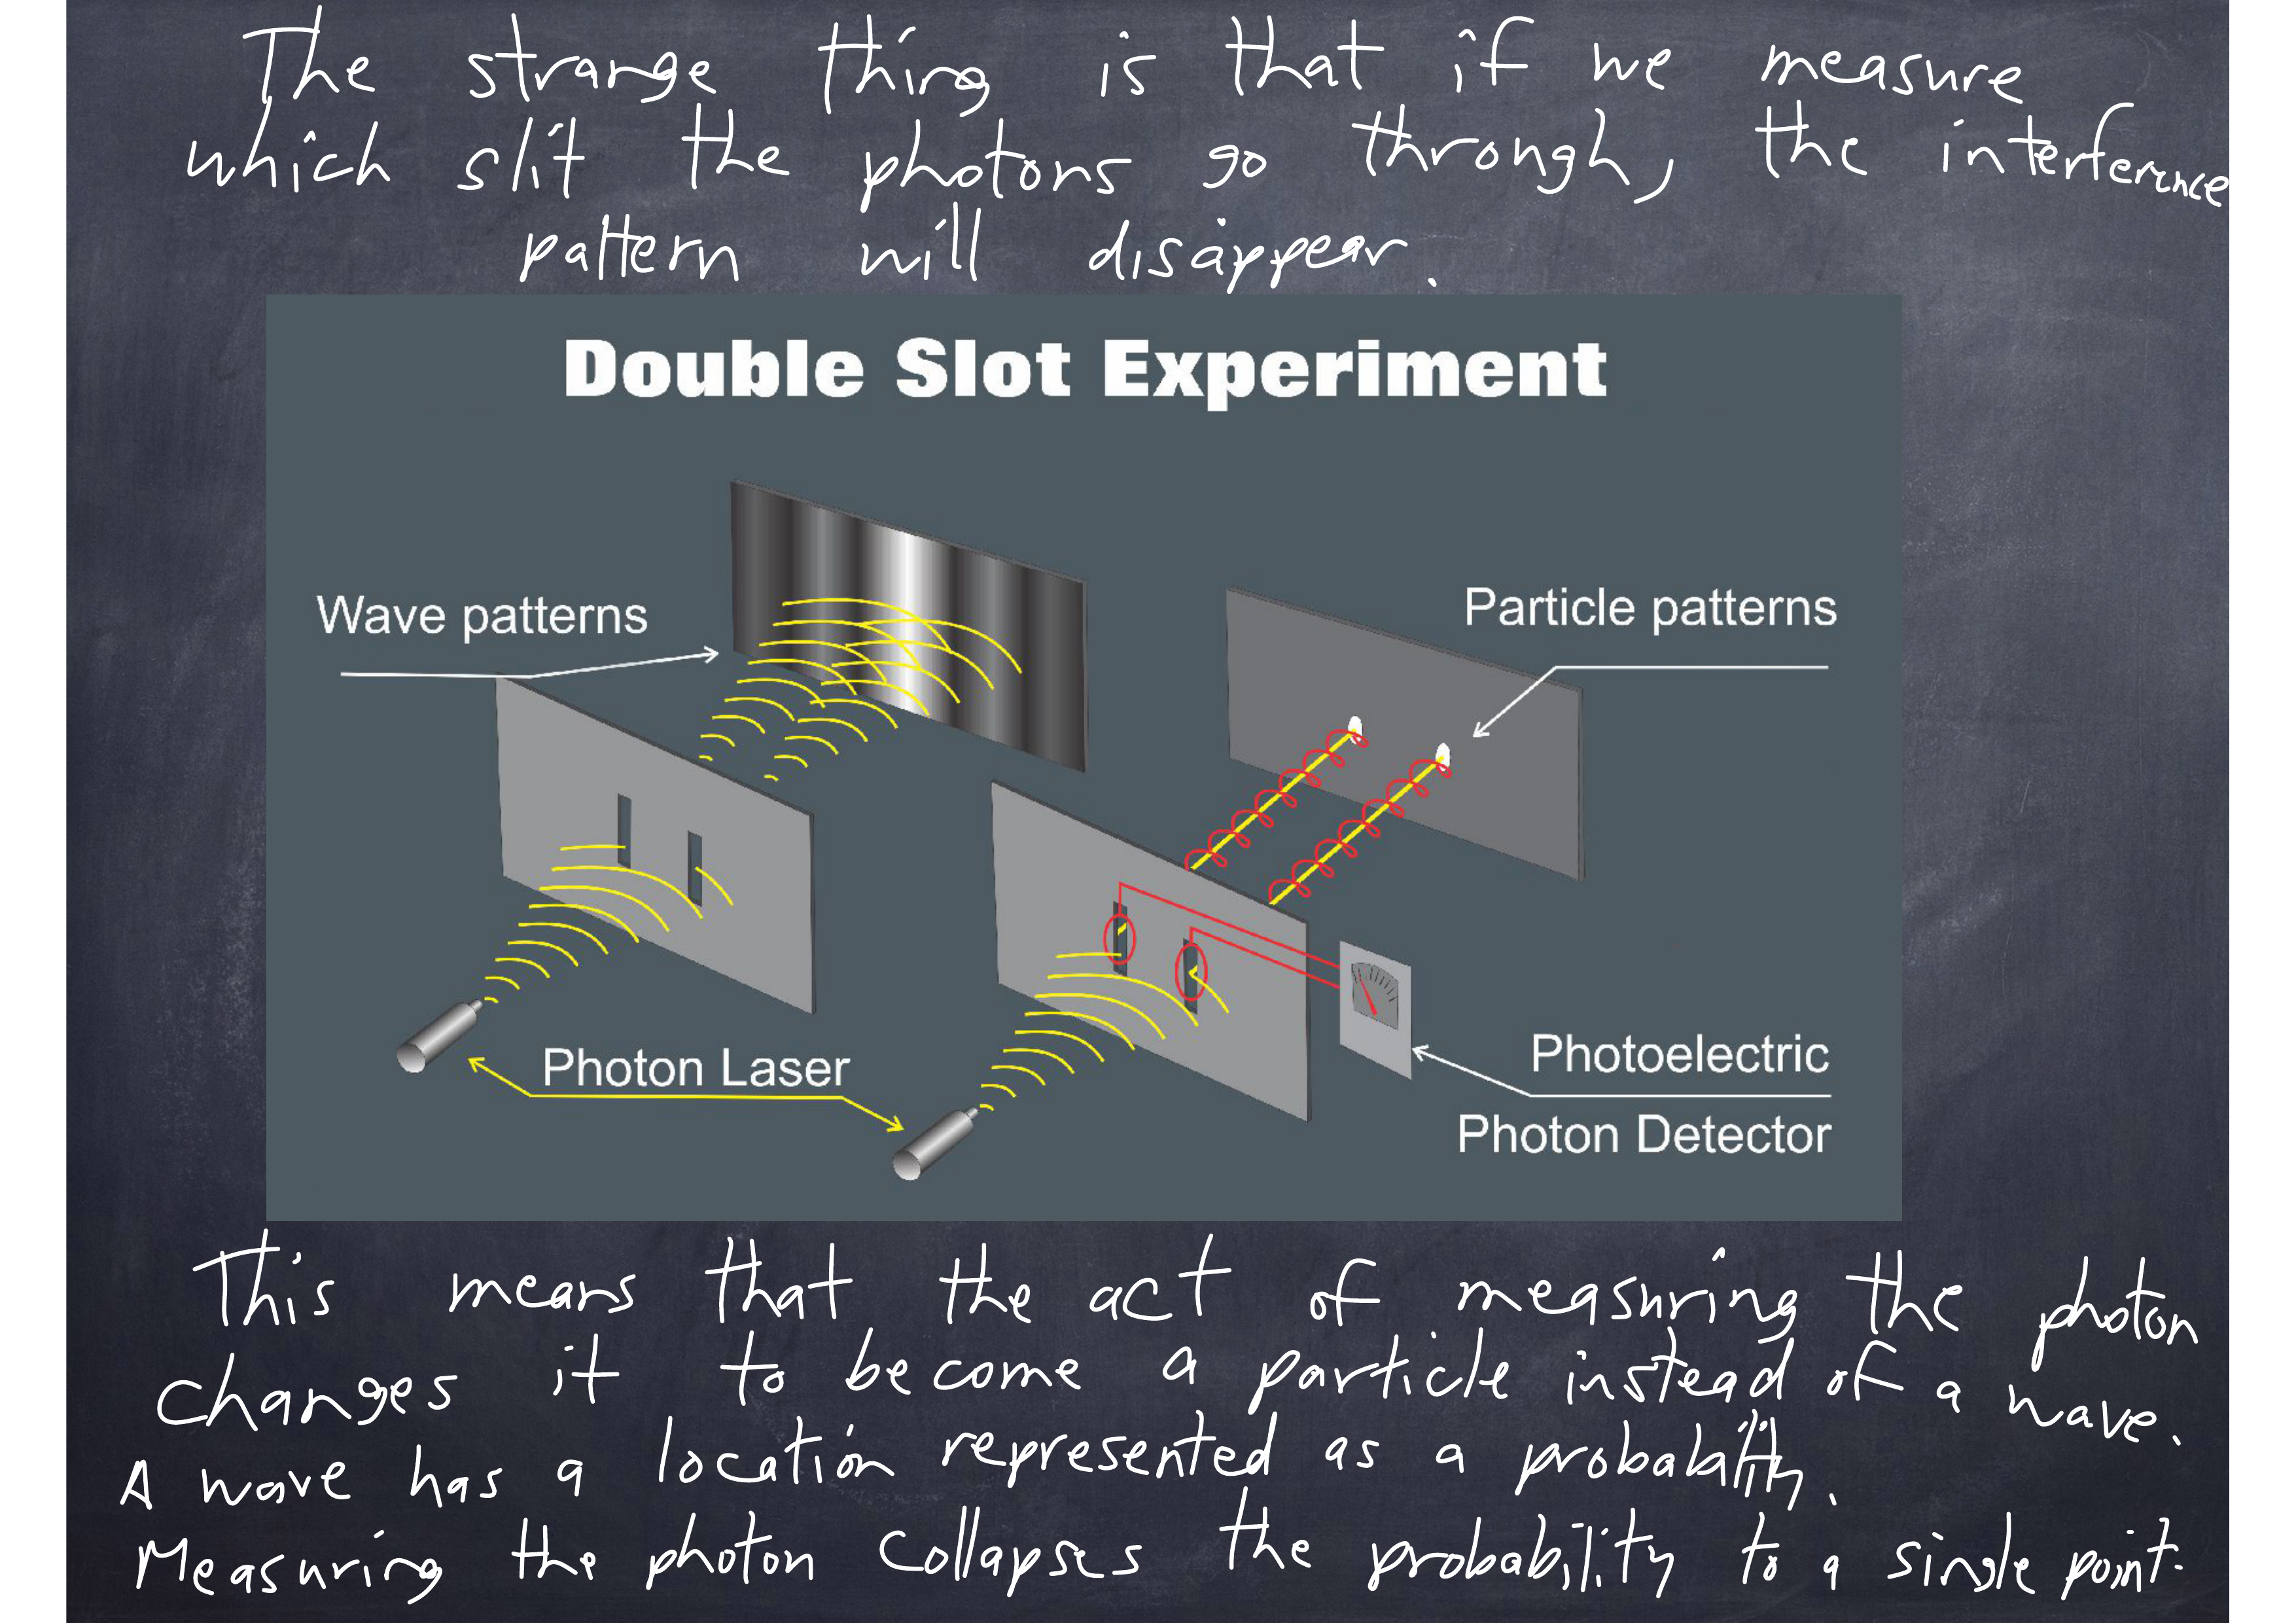 The strange thing is that if we measure
which slit the photons go through, the interference
pattern will disappear.
Double Slot Experiment
Wave patterns
Particle patterns
Photon Laser
Photoelectric
Photon Detector
This means that the act of measuring the photon
changes it to become a particle instead of a wave.
A wave has a location represented as a probabability.
Measuring the photon collapses the probability to a single point.